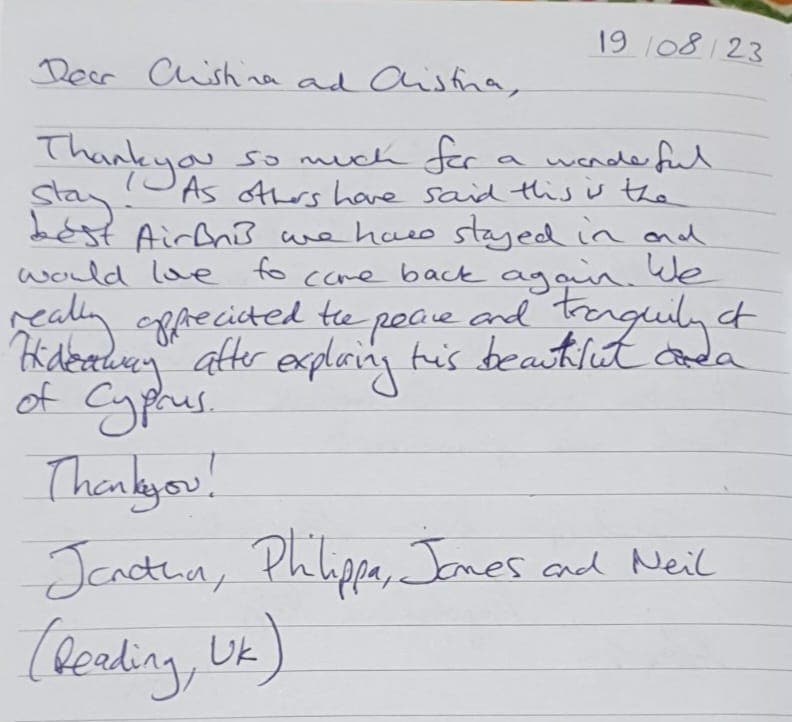 19/08/23
Dear Christina and Christina,
Thankyou so much for a wonderful
stay! As others have said this is the
best AirBnB we have stayed in and
would love to come back again. We
really appreciated the peace and tranquily at
Hideaway after exploring this beautiful area
of Cyprus.
Thankyou!
Philippa, James and Neil
(Reading, UK)